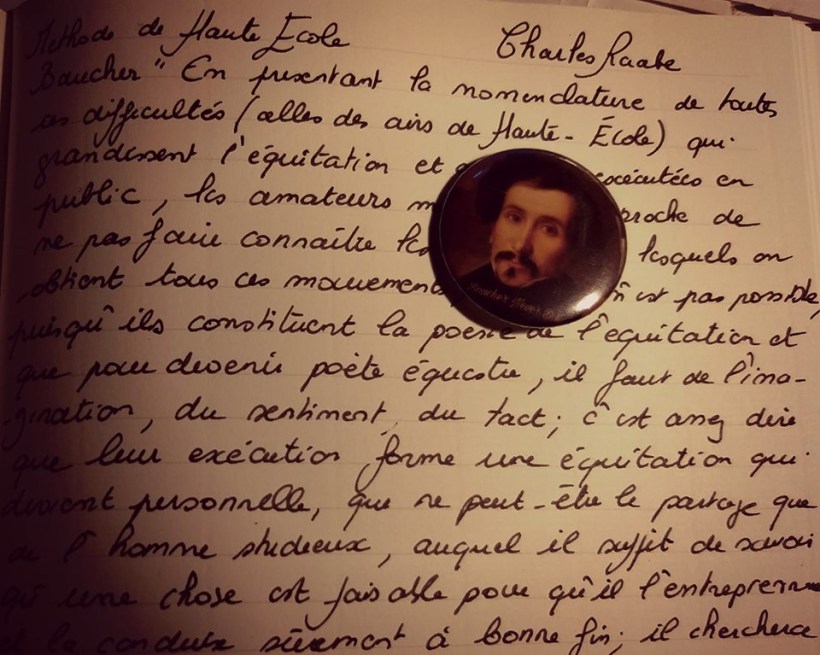 Méthode de Haute Ecole Charles Raabe
Baucher " En presentant la nomenclature de toutes
ces difficultés (celles des airs de Haute-École) qui
grandissent l'équitation et exécutées en
public, les amateurs proche de
ne pas faire connaître les lesquels on
obtient tous ces mouvements, n'est pas possible,
puisqu'ils constituent la poesie de l'equitation et
que pour devenir poète équestre, il faut de l'ima-
gination, du sentiment, du tact; c'est assez dire
que leur exécution forme une équitation qui
devient personnelle, que ne peut-être le partage que
de l'homme studieux, auquel il suffit de savoir
qu'une chose est faisable pour qu'il l'entreprenne
et la conduise sûrement à bonne fin; il cherchera